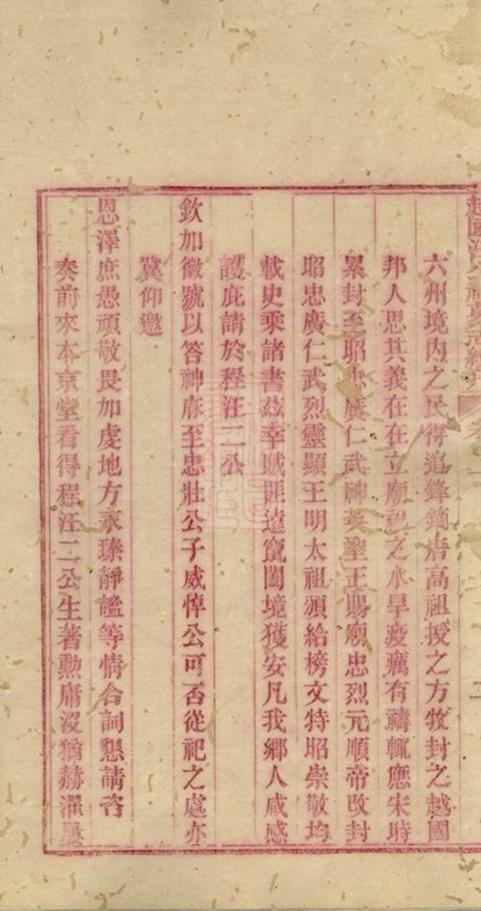 六州境內之民得追鋒鏑唐高祖授之方牧封之越國
邦人思其義在在立廟祀之水旱疫癘有禱輒應宋時
累封至昭忠廣仁武神英聖王賜廟忠烈元順帝改封
昭忠廣仁武烈靈顯王明太祖頒給榜文特昭崇敬均
載史乘諸書茲幸賊匪遠竄闔境獲安凡我鄉人咸感
護庇請於程汪二公
欽加徽號以答神庥至忠壯公子威悼公可否從祀之處亦
冀仰邀
恩澤庶愚頑敬畏加虔地方永臻靜謐等情合詞懇請咨
奏前來本京堂看得程汪二公生著勳庸沒猶赫濯